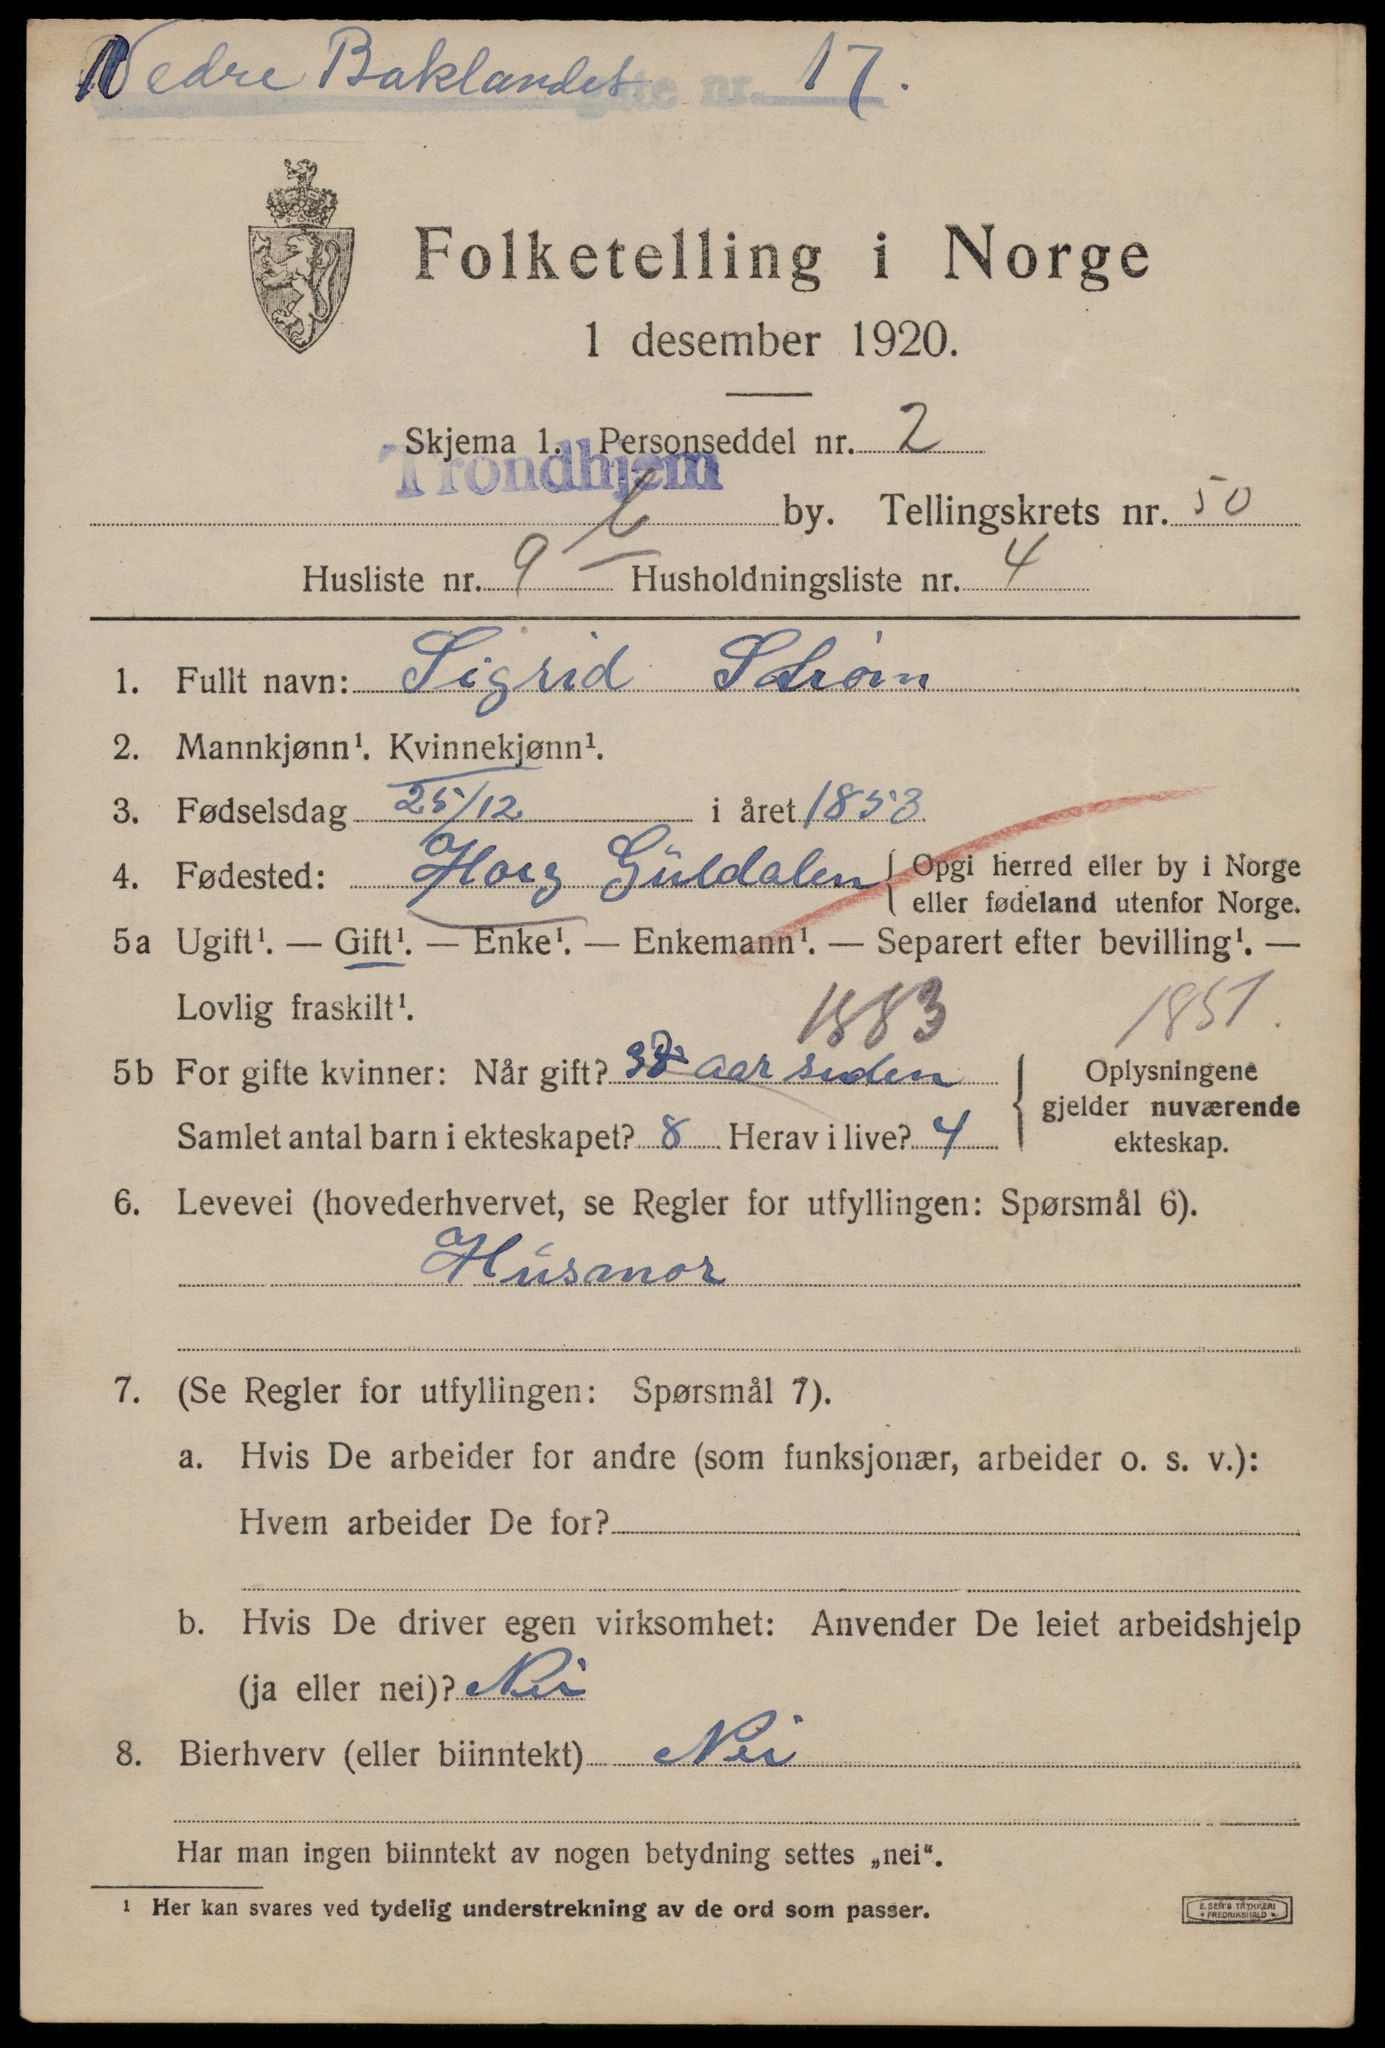 Nedre Baklandet gate nr. 17.
Folketelling i Norge
1 desember 1920.
Skjema 1. Personseddel nr. 2
Trondhjem by. Tellingskrets nr. 50
Husliste nr. 9 b Husholdningsliste nr. 4
1. Fullt navn: Sigrid Strøm
2. Mannkjønn¹. Kvinnekjønn¹.
3. Fødselsdag 25/12 i året 1853
4. Fødested: Horg Guldalen { Opgi herred eller by i Norge
eller fødeland utenfor Norge.
5a Ugift¹. — Gift¹. — Enke¹. — Enkemann¹. — Separert efter bevilling¹. —
Lovlig fraskilt¹. 1883 1851.
5b For gifte kvinner: Når gift? aar siden { Oplysningene
gjelder nuværende
Samlet antal barn i ekteskapet? 8 Herav i live? 4 ekteskap.
6. Levevei (hovederhvervet, se Regler for utfyllingen: Spørsmål 6).
Husmor
7. (Se Regler for utfyllingen: Spørsmål 7).
a. Hvis De arbeider for andre (som funksjonær, arbeider o. s. v.):
Hvem arbeider De for?
b. Hvis De driver egen virksomhet: Anvender De leiet arbeidshjelp
(ja eller nei)? Nei
8. Bierhverv (eller biinntekt) Nei
Har man ingen biinntekt av nogen betydning settes „nei“.
¹ Her kan svares ved tydelig understrekning av de ord som passer.
E. SEM'S TRYKKERI
* FREDRIKSHALD *